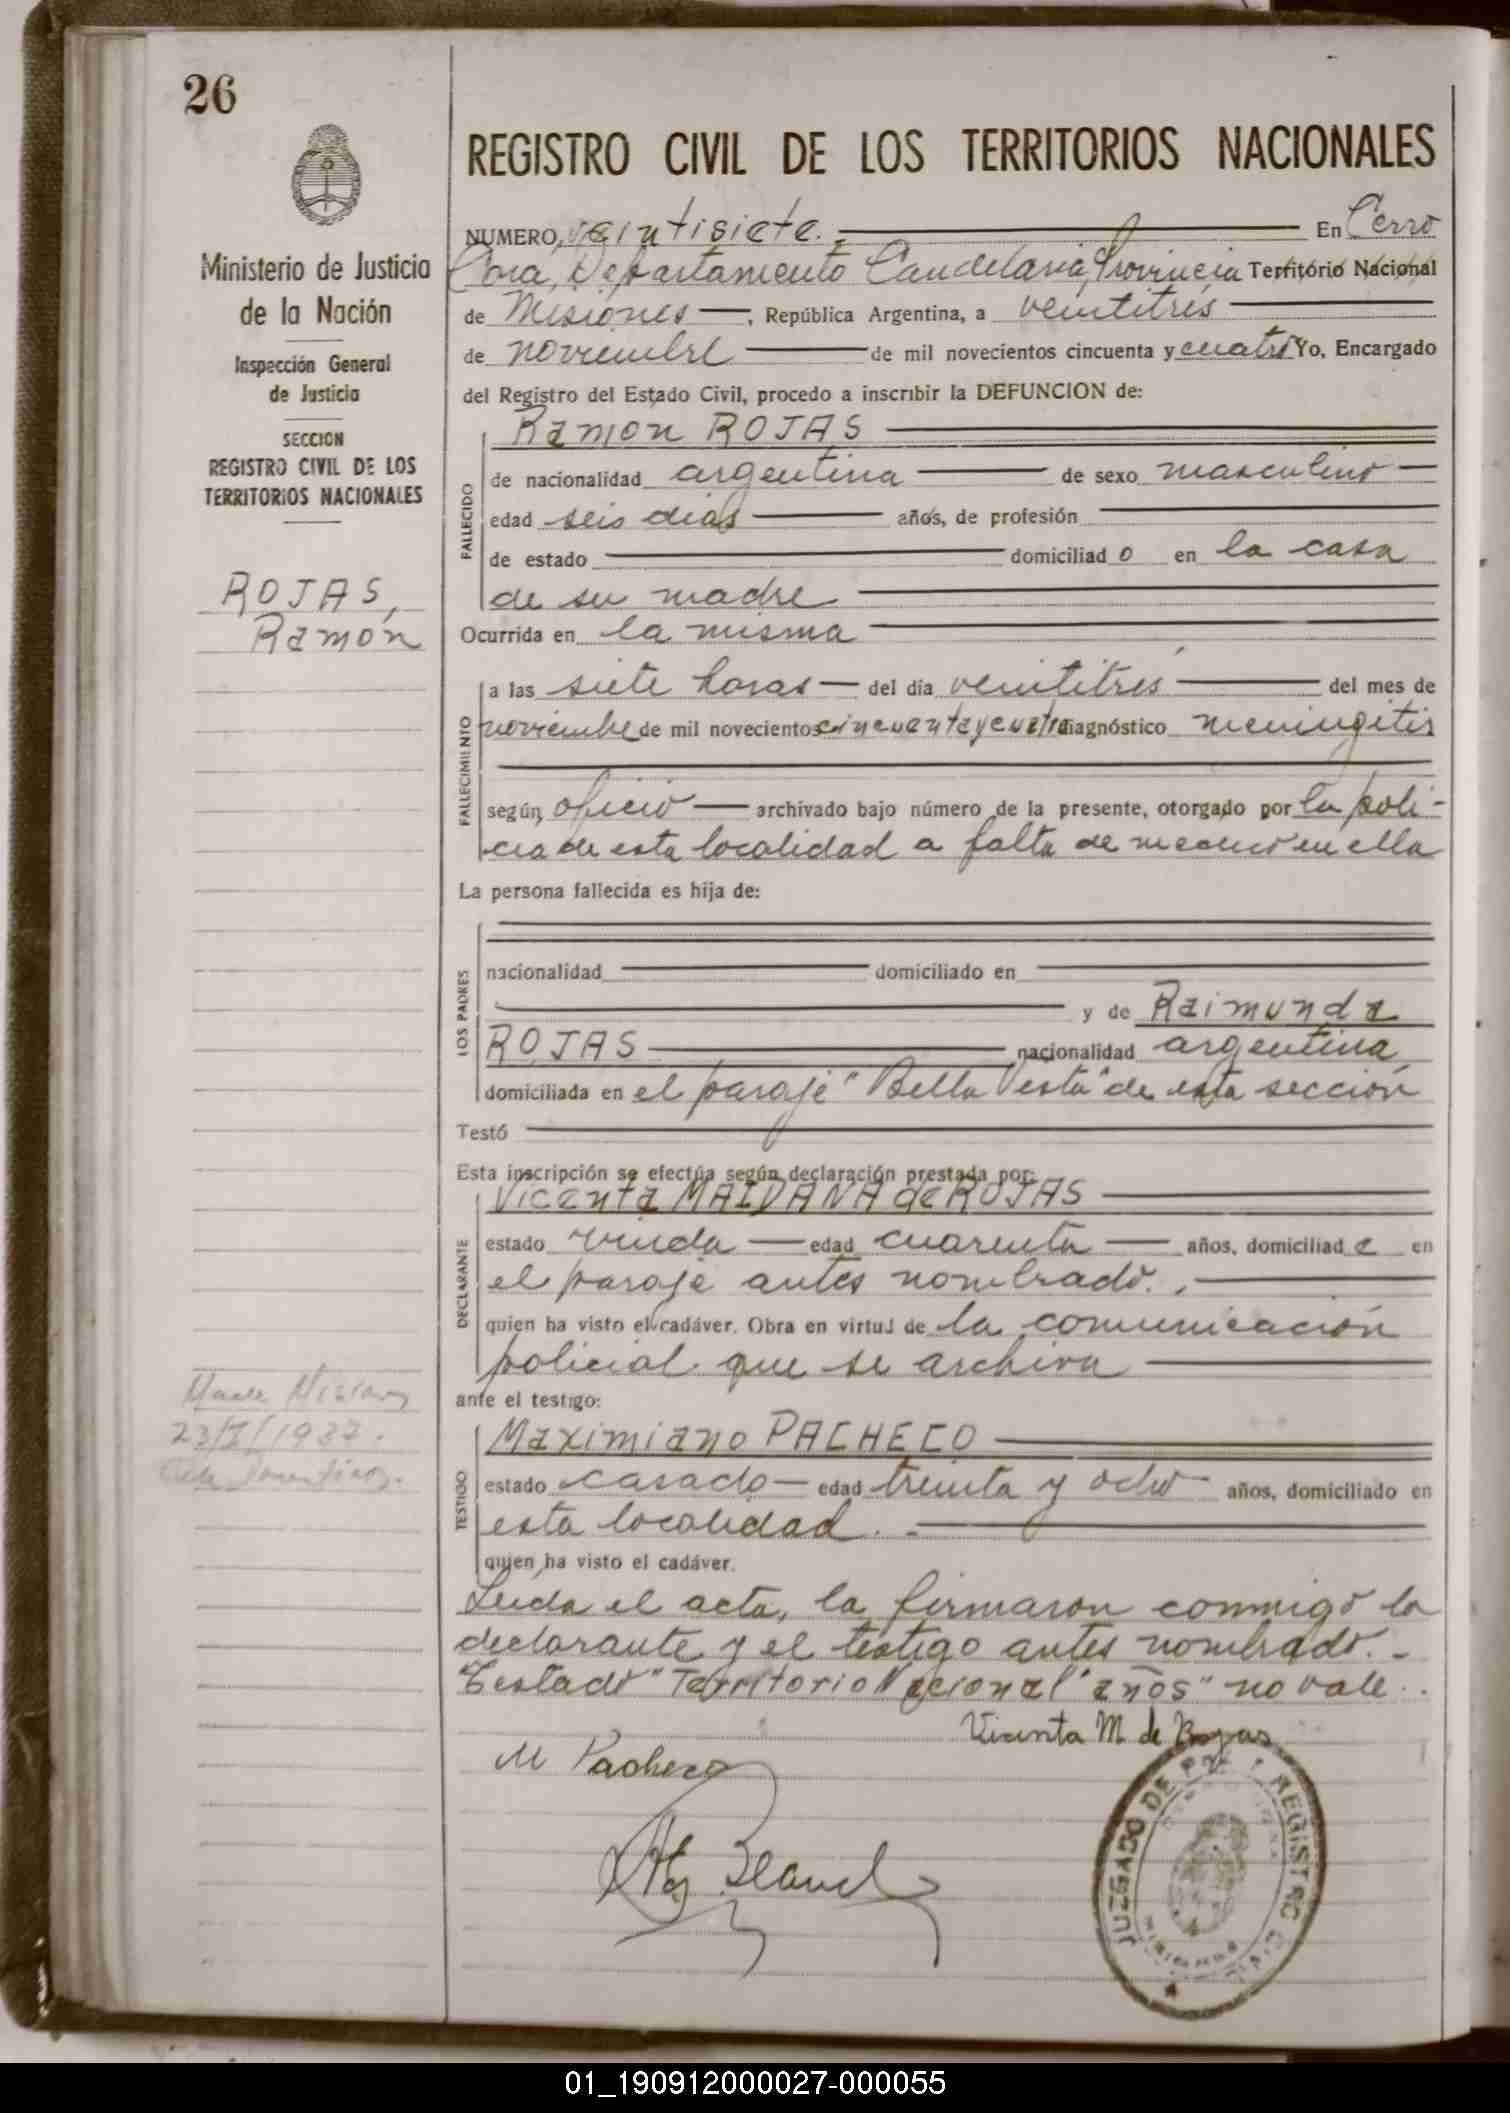 26
Ministerio de Justicia
de la Nación
Inspección General
de Justicia
SECCION
REGISTRO CIVIL DE LOS
TERRITORIOS NACIONALES
ROJAS,
Ramón
23/I/1937.
REGISTRO CIVIL DE LOS TERRITORIOS NACIONALES
NUMERO, veintisiete. En Cerro
Cora, Departamento Candelaria, Provincia Territorio Nacional
de Misiones, República Argentina, a veintitrés
de noviembre de mil novecientos cincuenta y cuatro Yo, Encargado
del Registro del Estado Civil, procedo a inscribir la DEFUNCION de:
Ramon ROJAS
FALLECIDO
de nacionalidad argentina de sexo masculino
edad seis dias años, de profesión
de estado domiciliad o en la casa
de su madre
Ocurrida en la misma
FALLECIMIENTO
a las siete horas del día veintitrés del mes de
noviembre de mil novecientos cincuenta y cuatro diagnóstico meningitis
según oficio archivado bajo número de la presente, otorgado por la poli-
cia de esta localidad a falta de medico en ella
La persona fallecida es hija de:
LOS PADRES
nacionalidad domiciliado en
y de Raimunda
ROJAS nacionalidad argentina,
domiciliada en el paraje "Bella Vista" de esta sección
Testó
Esta inscripción se efectúa según declaración prestada por:
DECLARANTE
Vicenta MAIDANA de ROJAS
estado viuda edad cuarenta años, domiciliad a en
el paraje antes nombrado.
quien ha visto el cadáver. Obra en virtud de la comunicación
policial que se archiva
ante el testigo:
TESTIGO
Maximiano PACHECO
estado casado edad treinta y ocho años, domiciliado en
esta localidad.
quien ha visto el cadáver.
Leida el acta, la firmaron conmigo la
declarante y el testigo antes nombrado.-
Testado "Territorio Nacional" "años" no vale..
Vicenta M. de Rojas
M Pacheco
JUZGADO DE PAZ Y REGISTRO CIVIL
01_190912000027-000055